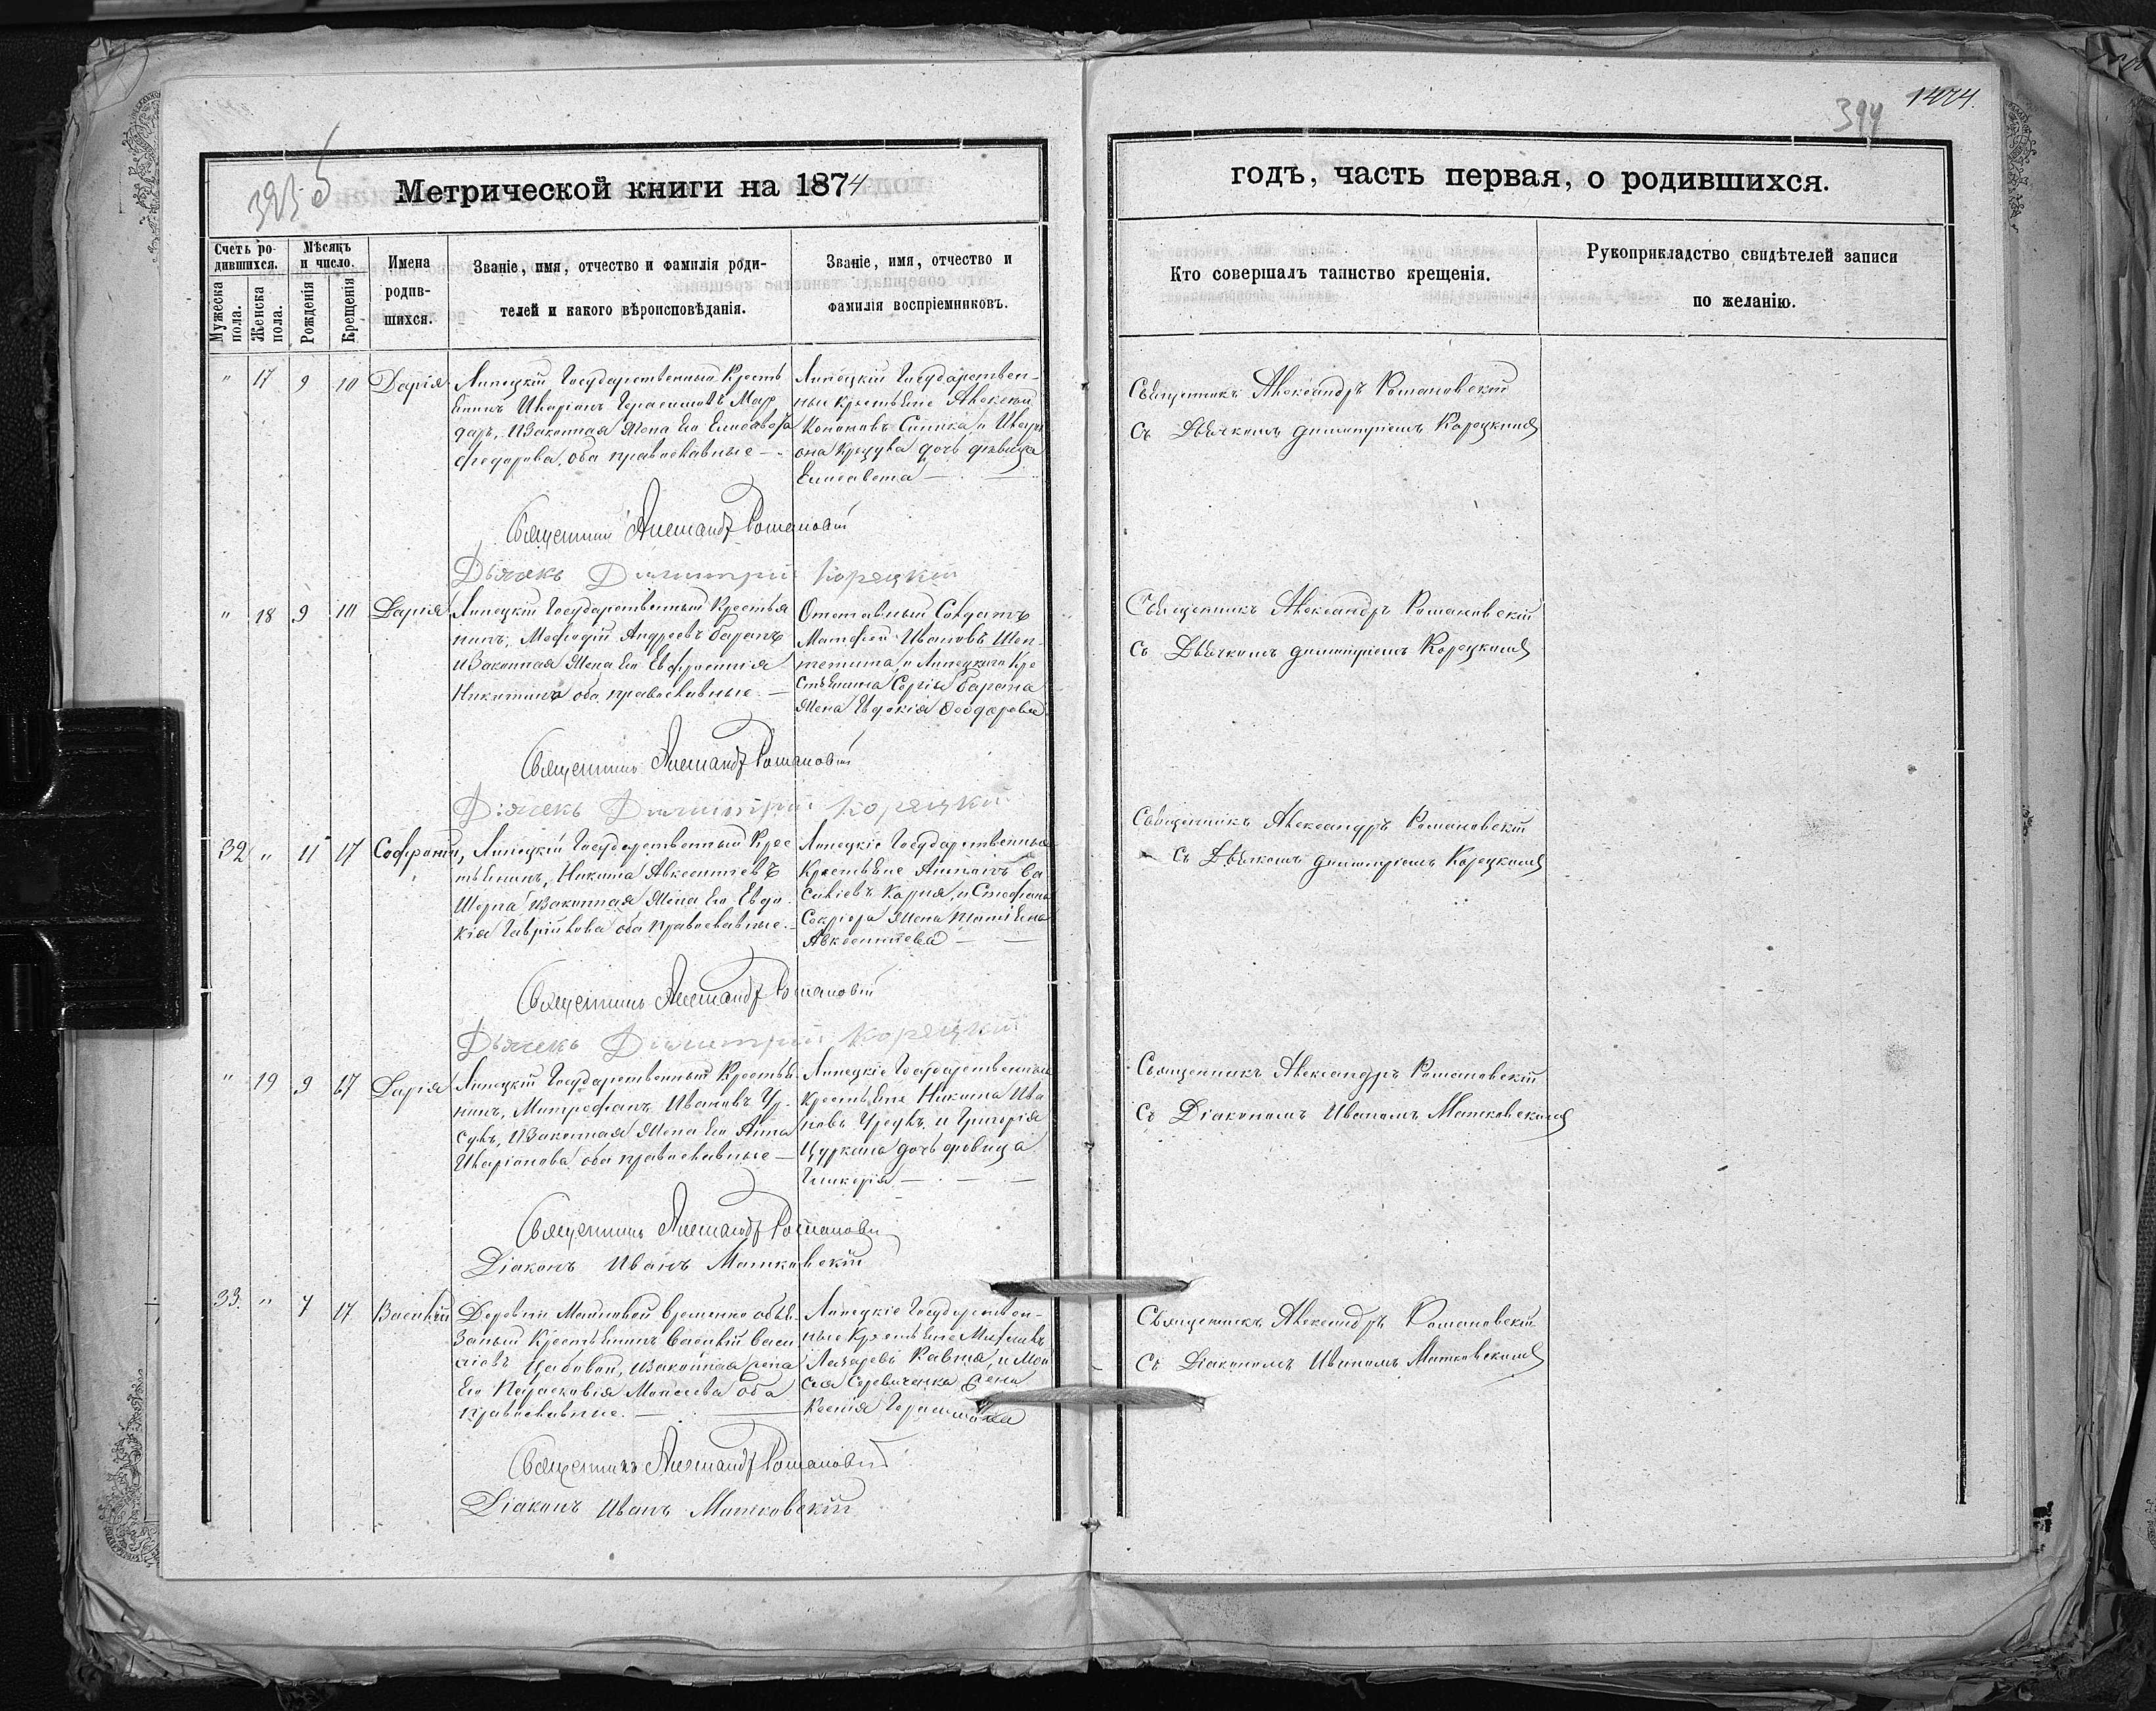 Метрической книги на 1874
годъ, часть первая, о родившихся.
394
1474.
Счетъ ро-
дившихся.
Мѣсяцъ
и число.
Мужеска
пола.
Женска
пола.
Рожденія
Крещенія
Имена
родив-
шихся.
Званіе, имя, отчество и фамилія роди-
телей и какого вѣроисповѣданія.
Званіе, имя, отчество и
фамилія воспріемниковъ.
Кто совершалъ таинство крещенія.
Рукоприкладство свидѣтелей записи
по желанію.
" 17 9 10 Дарія
Липецкій Государственный Кресть
янинъ Иларіонъ Герасимовъ Мар
дарь, и законная жена его Елисавета
Феодорова, оба православные —
Липецкій Государствен-
ные крестьяне Алексѣй
Кононовъ и Илари
она дочь дѣвица
Елисавета —
Священникъ Александръ Романовскій
съ Дьячкомъ Димитріемъ Корецкимъ
Священникъ Александръ Романовскій
Дьячекъ Димитрій Корецкій
" 18 9 10 Дарія
Липецкій Государственный Крестья
нинъ, Мефодій Андреевъ Баранъ
и законная жена его Евфросинія
Никитина оба православные. —
Отставный Солдатъ
Матфей Ивановъ Шеп-
и Липецкаго Кре
стьянина Сергія Барана
жена Евдокія Феодорова
Священникъ Александръ Романовскій
Съ Дьячкомъ Димитріемъ Корецкимъ
Священникъ Александръ Романовскій
Дьячекъ Димитрій Корецкій
32 " 11 17 Софроній,
Липецкій Государственный Крес
тьянинъ, Никита Авксентіевъ
законная жена его Евдо-
кія Гаврійлова оба православные. —
Липецкіе Государственные
Крестьяне Антонъ Ва
силіевъ и Стефана
жена Татіяна
Авксентіева — —
Священникъ Александръ Романовскій
Съ Дьячкомъ Димитріемъ Корецкимъ
Священникъ Александръ Романовскій
Дьячекъ Димитрій Корецкій
" 19 9 17 Дарія
Липецкій Государственный Крестья
нинъ, Митрофанъ Ивановъ Ур-
сулъ, и законная жена его Анна
Иларіонова оба православные —
Липецкіе Государственные
крестьяне Никита Ива
новъ Урсулъ, и Григорія
Цуркана дочь дѣвица
Гликерія — — —
Священникъ Александръ Романовскій
Съ Діакономъ Иваномъ Матковскимъ
Священникъ Александръ Романовскій
Діаконъ Иванъ Матковскій
33. " 7 17 Василій
Деревни Малиновой временно обвя-
занный Крестьянинъ Василій Васи
ліевъ законная жена
его Параскевія Моисеева оба
православные. —
Липецкіе Государствен-
ные Крестьяне Михаилъ
Лазаревъ и Мои
сея жена
Ксенія Герасимова
Священникъ Александръ Романовскій
Съ Діакономъ Иваномъ Матковскимъ
Священникъ Александръ Романовскій
Діаконъ Иванъ Матковскій